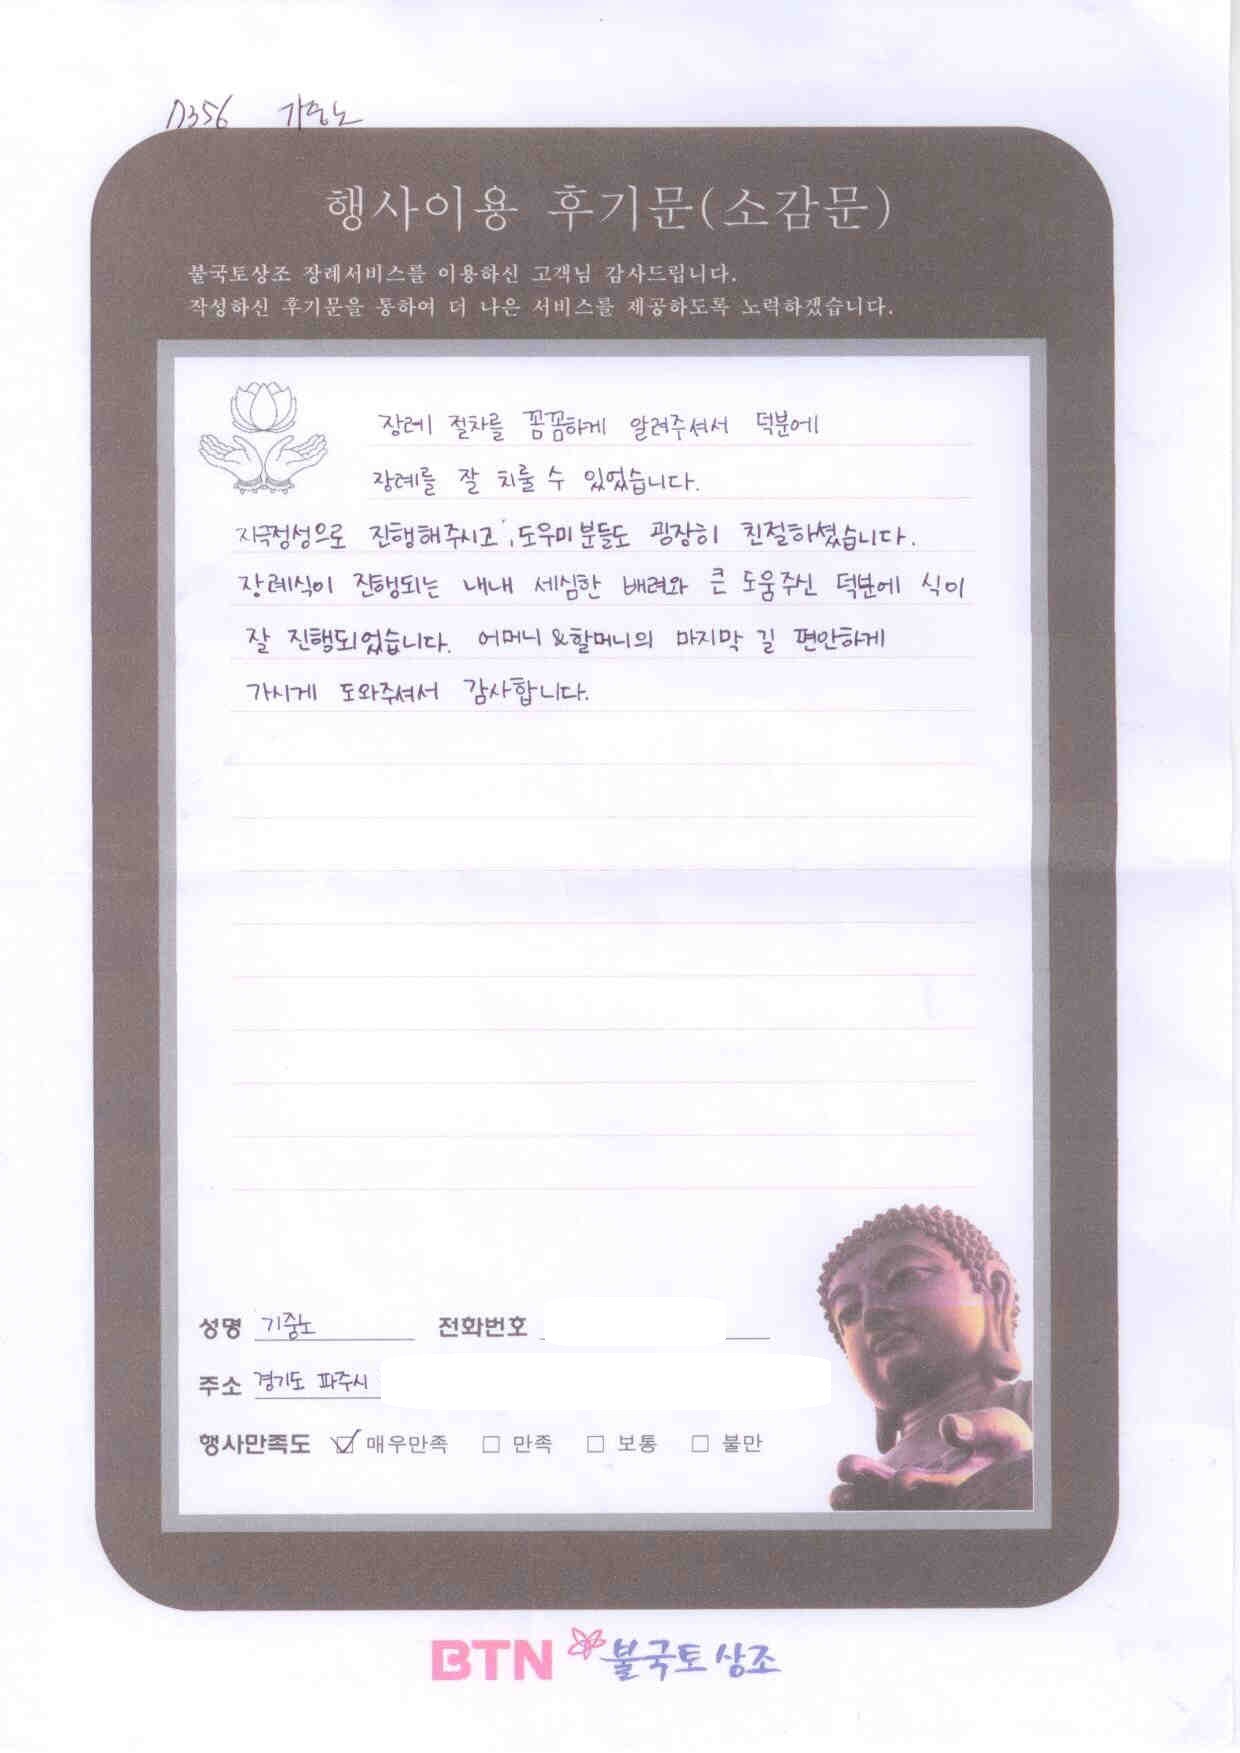 D356 기중노
행사이용 후기문(소감문)
불국토상조 장례서비스를 이용하신 고객님 감사드립니다.
작성하신 후기문을 통하여 더 나은 서비스를 제공하도록 노력하겠습니다.
장례 절차를 꼼꼼하게 알려주셔서 덕분에
장례를 잘 치룰 수 있었습니다.
지극정성으로 진행해주시고, 도우미분들도 굉장히 친절하셨습니다.
장례식이 진행되는 내내 세심한 배려와 큰 도움주신 덕분에 식이
잘 진행되었습니다. 어머니&할머니의 마지막 길 편안하게
가시게 도와주셔서 감사합니다.
성명 기중노 전화번호
주소 경기도 파주시
행사만족도 ☑ 매우만족 □ 만족 □ 보통 □ 불만
BTN 불국토상조